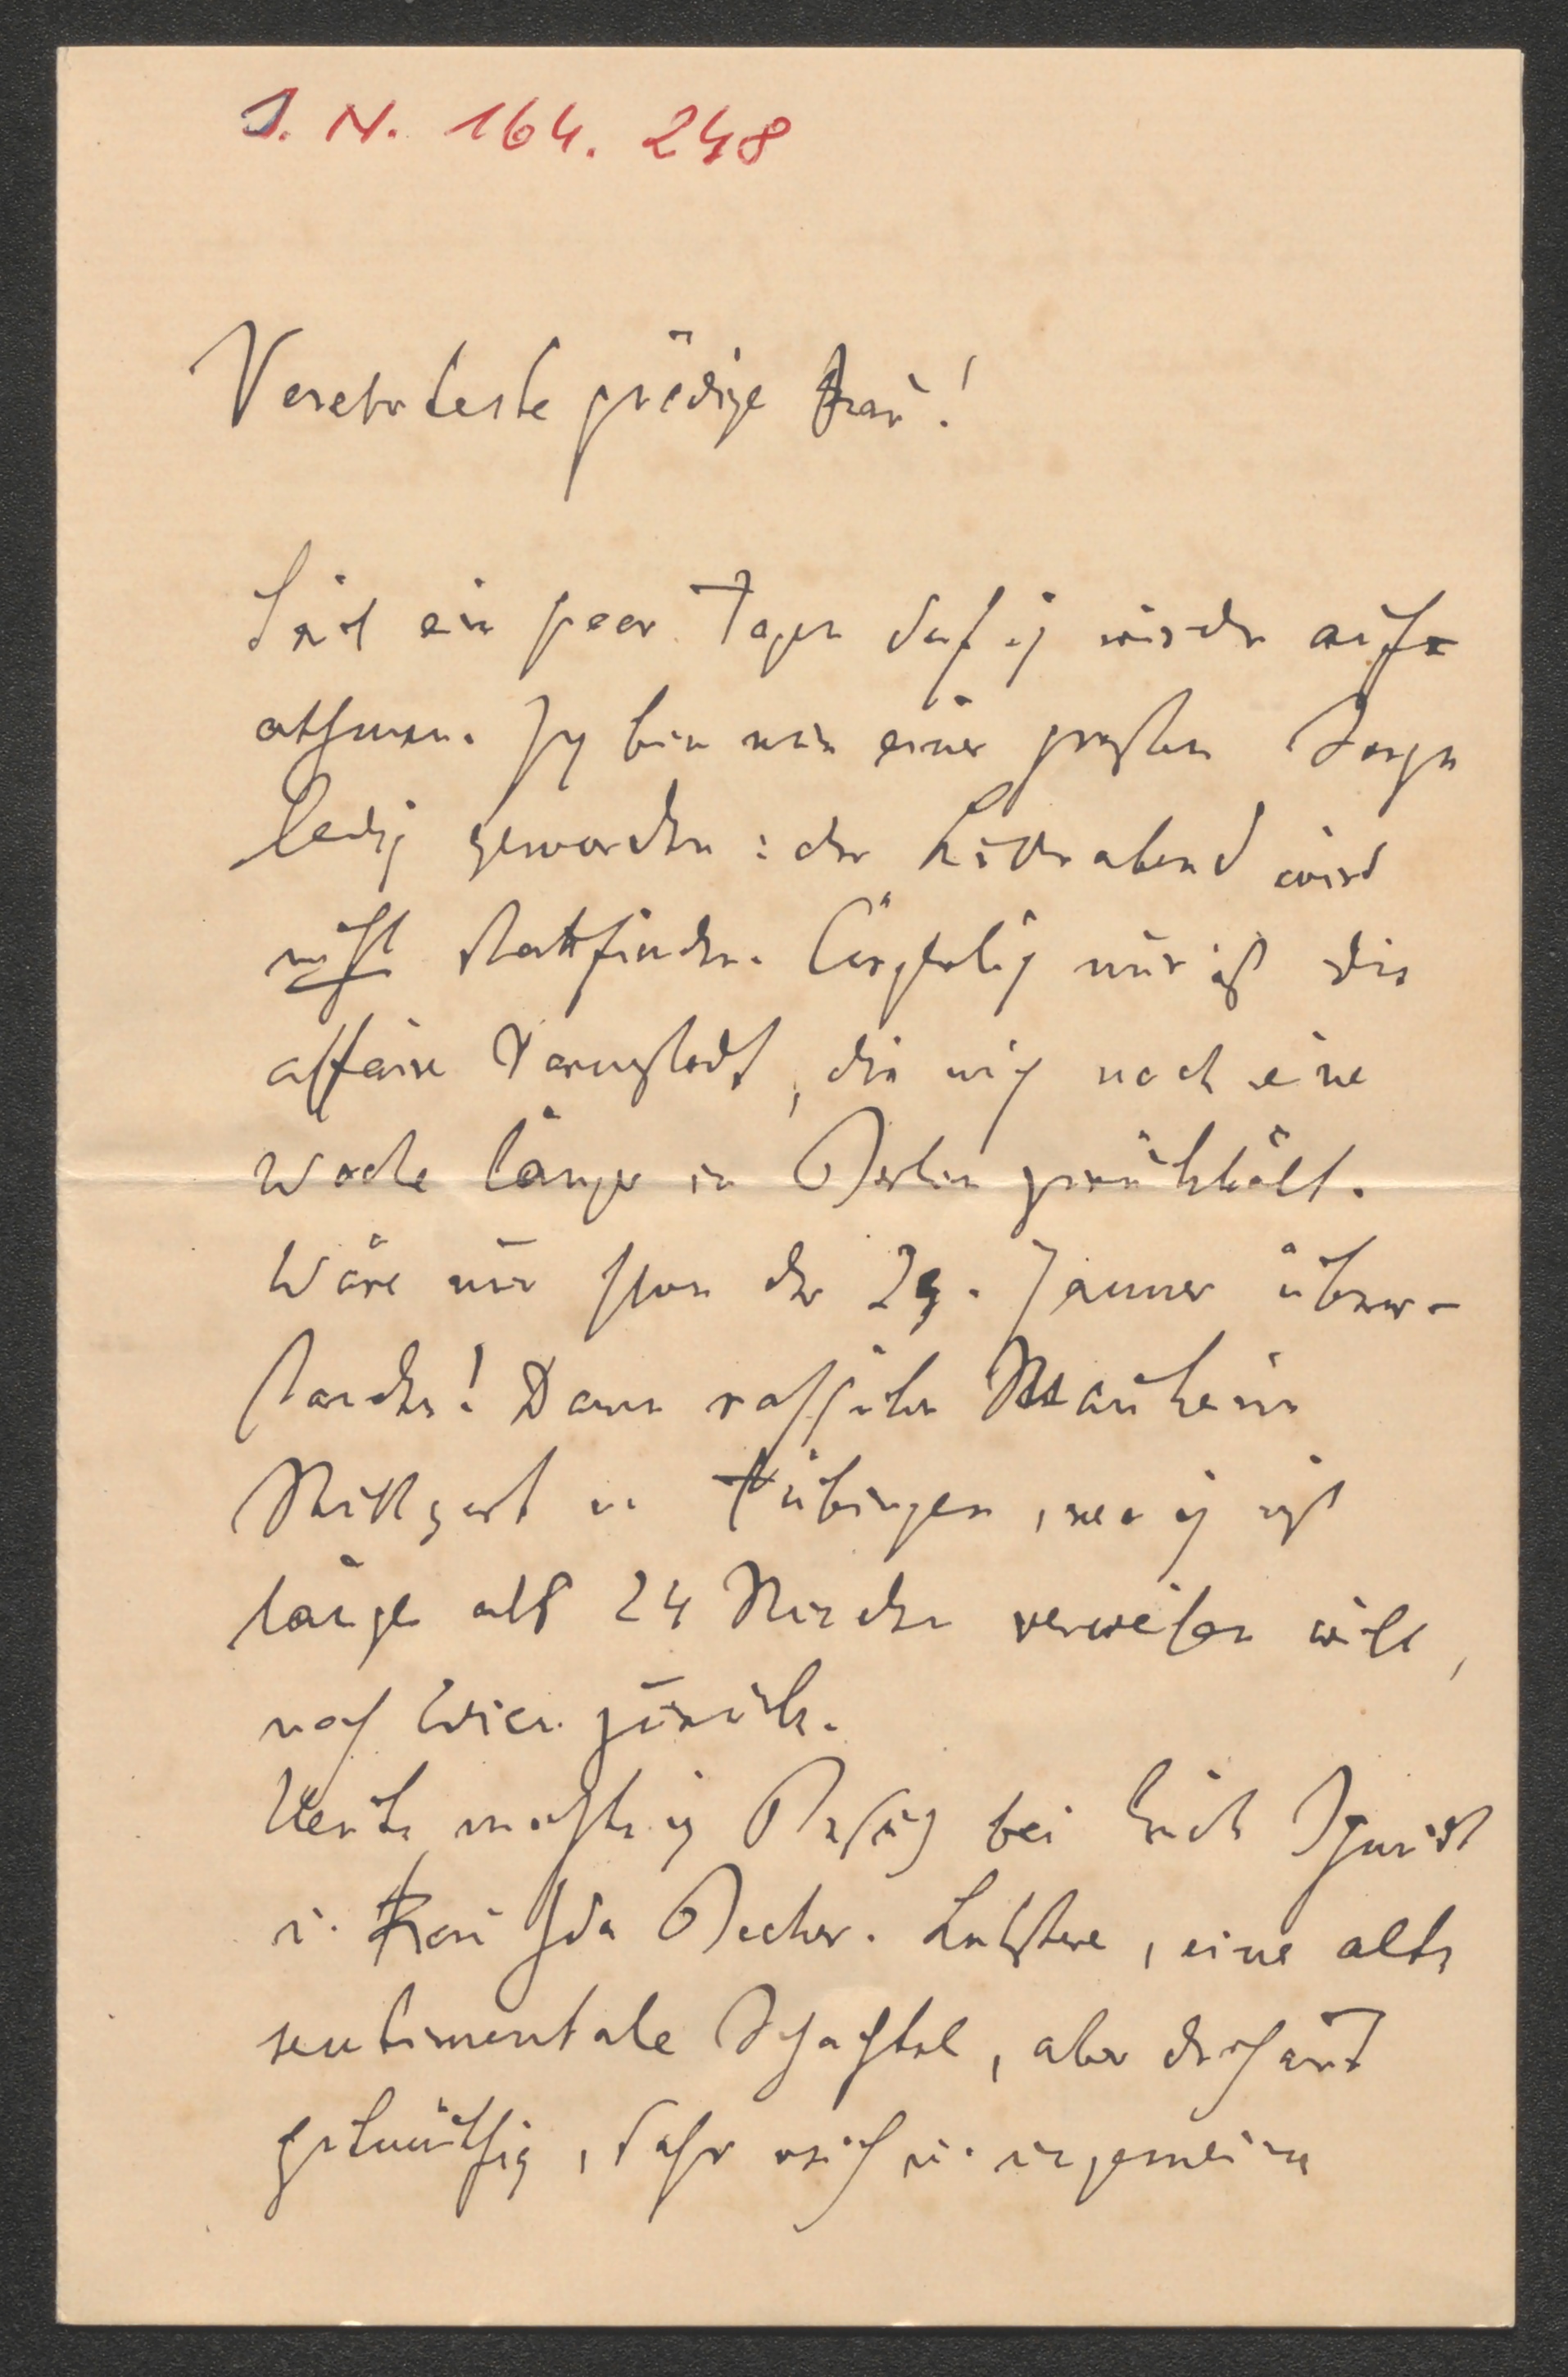 I. N. 164.248
Verehrteste gnädige Frau!
Seit ein paar Tagen darf ich wieder auf-
athmen. Ich bin nun einer großen Sorge
ledig geworden: der Liederabend wird
nicht stattfinden. Ärgerlich nur ist die
affaire Darmstadt, die mich noch eine
Woche länger in Berlin zurückhält.
Wäre nur schon der 29. Jänner über-
standen! Dann rasch über Manheim
Stuttgart u. Tübingen, wo ich nicht
länger als 24 Stunden verweilen will,
nach Wien zurück.
Heute machte ich Besuch bei Erich Schmidt
u. Frau Ida Becker. Letztere, eine alte
sentimentale Schachtel, aber durchaus
gutmüthig, sehr reich u. ungemein